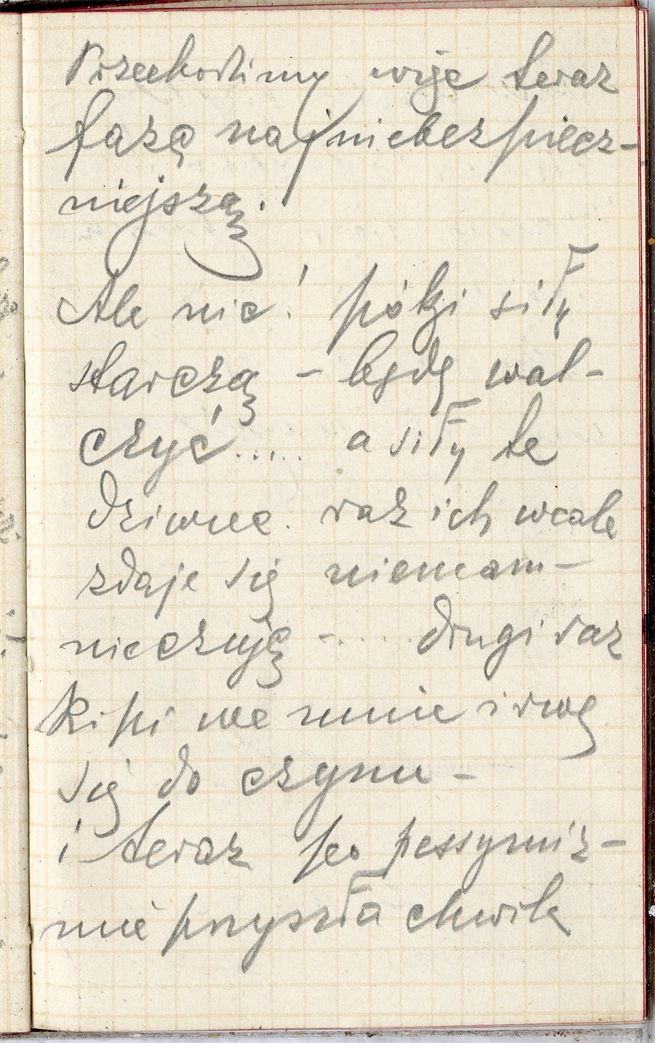 Przechodzimy więc teraz
fazę najniebezpiecz-
niejszą.
Ale nic! póki siły
starczą – będę wal-
czyć..... a siły te
dziwne. raz ich wcale
zdaje się niemam –
nieczuję – .... drugi raz
kipi we mnie i rwę
się do czynu –
i teraz po pessymiz-
mie przyszła chwila